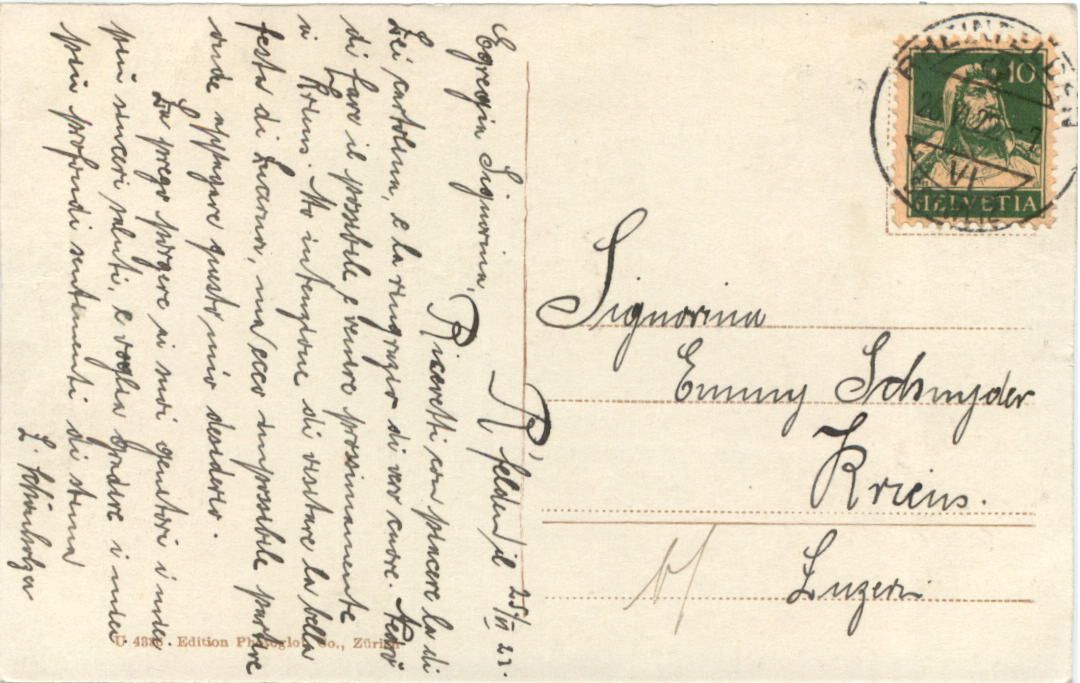 R'felden il 25/VI 23.
Egregia Signorina,
Ricevetti con piacere la di
Lei cartolina, e la ringrazio di vero cuore. Vedrò
di fare il possibile e venire prossimamente
a Kriens. Ho intenzione di visitare la bella
festa di Lucerna, ma ecco impossibile partire
onde appagare questo mio desiderio.
La prego porgere ai suoi genitori i miei
più sinceri saluti, e voglia gradire i miei
più profondi sentimenti di stima
Signorina
Emmy Schnyder
Kriens.
Luzern
10
HELVETIA
RHEINFELDEN
VI
U 4338. Edition Photoglob Co., Zürich